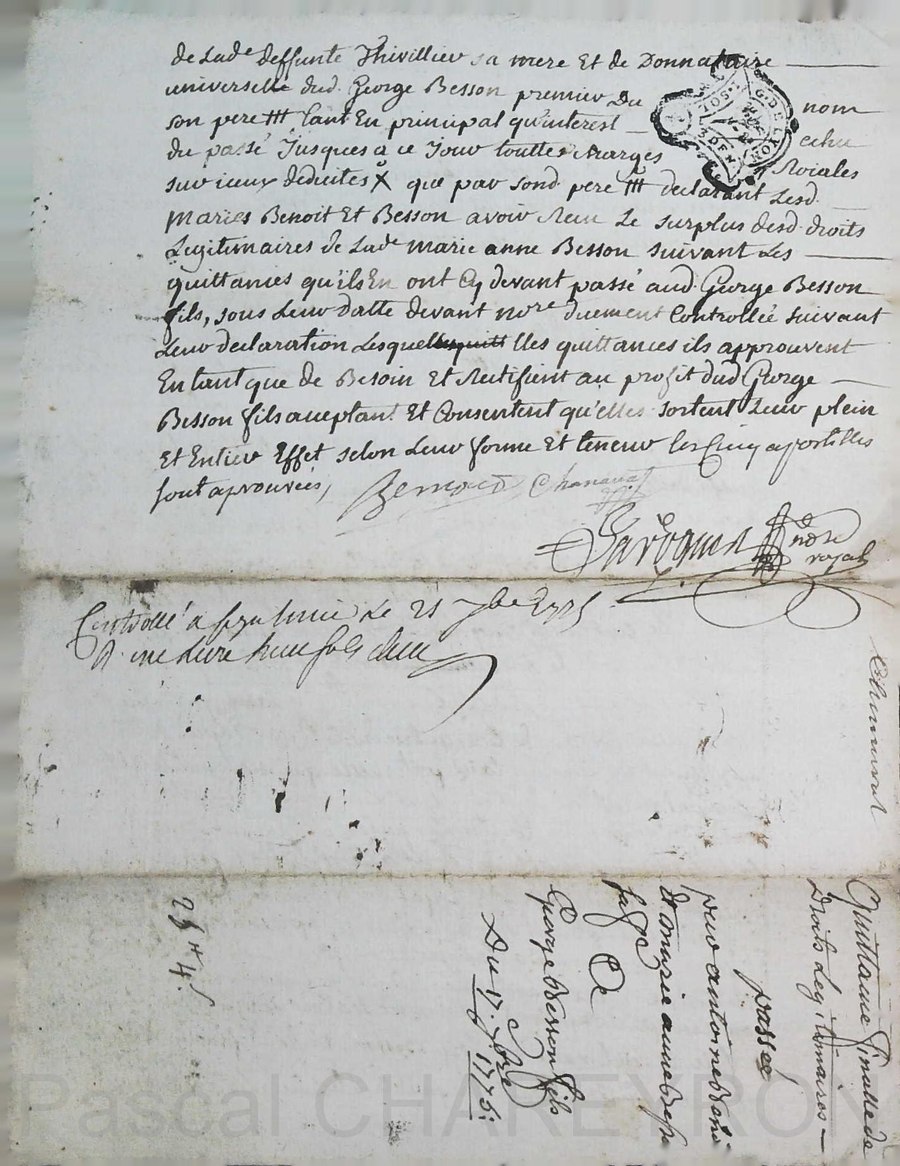 de Lade deffunte Thivillier sa mere Et de Donnataire
universelle dud. George Besson premier Du nom
son pere ttt tant En principal qu'interest echu
du passé Jusques a ce Jour touttes charges Roiales
sur iceux deduites X que par sond. pere ttt declarant Lesd.
Mariés Benoit Et Besson avoir Receu Le surplus desd. droits
Legitimaires de Lade marie anne Besson suivant Les
quittances qu'ils En ont Cy devant passé aud. George Besson
fils, sous Leur datte devant nore duement Controllée suivant
Leur declaration Lesquelles quittances ils approuvent
En tant que de Besoin Et Rectifient au profit dud George
Besson fils acceptant Et Consentent qu'elles sortent Leur plein
Et Entier Effet selon Leur forme Et teneur les Cinq apostilles
sont aprouvées,
Chanavat
nore
royal
G. D. LYON
SOL
DEN
Controllé a Le 21 7bre 1775
R. une Livre
Chanavat
Quittance finalle de
Droits Legitimaires
passée
par antoinne
Et marie anne Besson
A
George Besson fils
Du 17. 7bre 1775:
25tt 4s
Pascal CHAREYRON